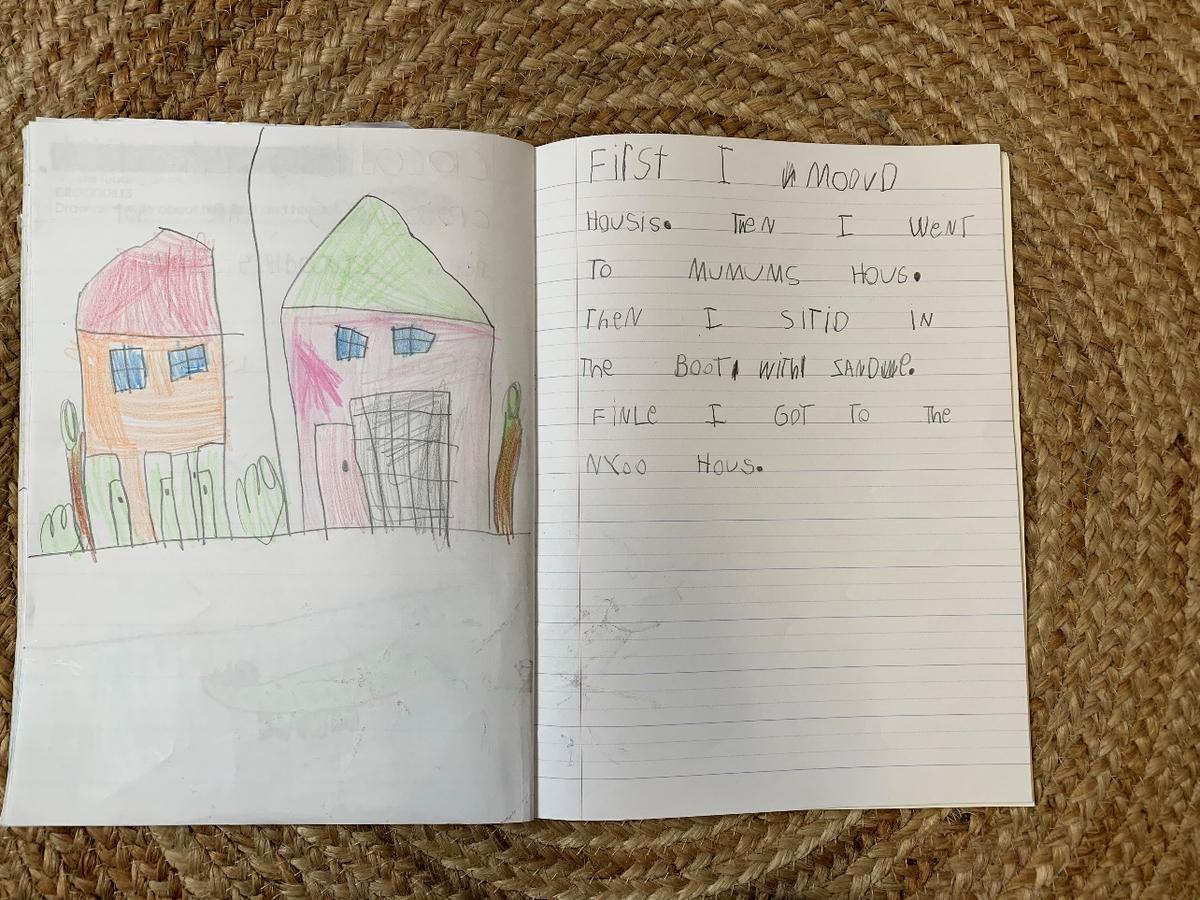 CROCODILES
First I MOOVD
HOUSIS. THEN I WENT
TO MUMUMS HOUS.
THEN I SITID IN
The BOOT WITH SANDWE.
FINLE I GOT TO The
NYOO HOUS.